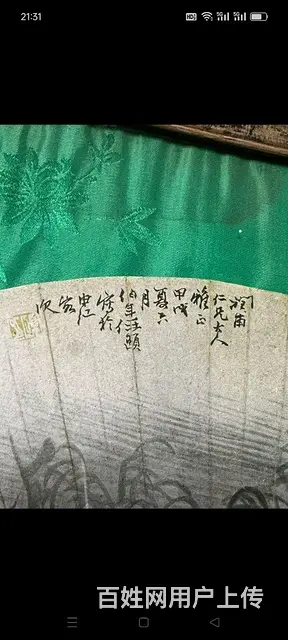 21:31
HD 5G 5G
潤甫
仁兄大人
雅正
甲戌
夏六
月
伯年任頤
寫於
申江
客
次
百姓网用户上传